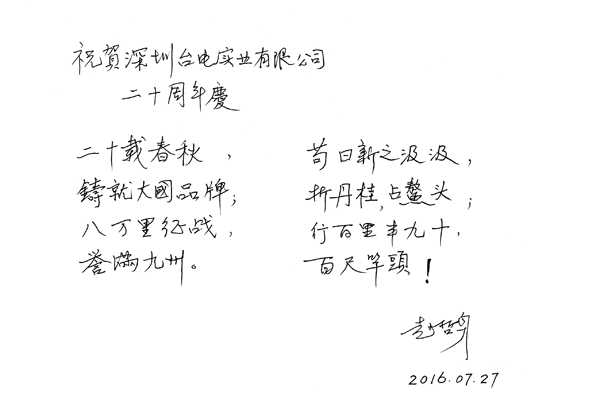 祝賀深圳台电实业有限公司
二十周年慶
二十载春秋，
鑄就大國品牌；
八万里征战，
誉满九州。
苟日新之汲汲，
折丹桂，占鳌头；
行百里半九十，
百尺竿頭！
2016.07.27